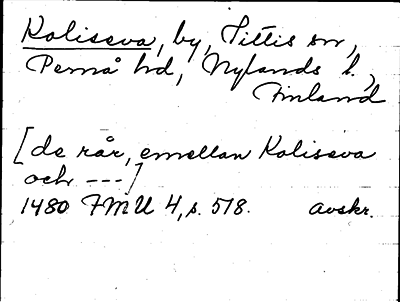 Koliseva, by, Tittis sn,
Pernå hd, Nylands l.,
Finland
[de rår, emellan Koliseva
och ---]
1480 FMU 4, s. 518. avskr.